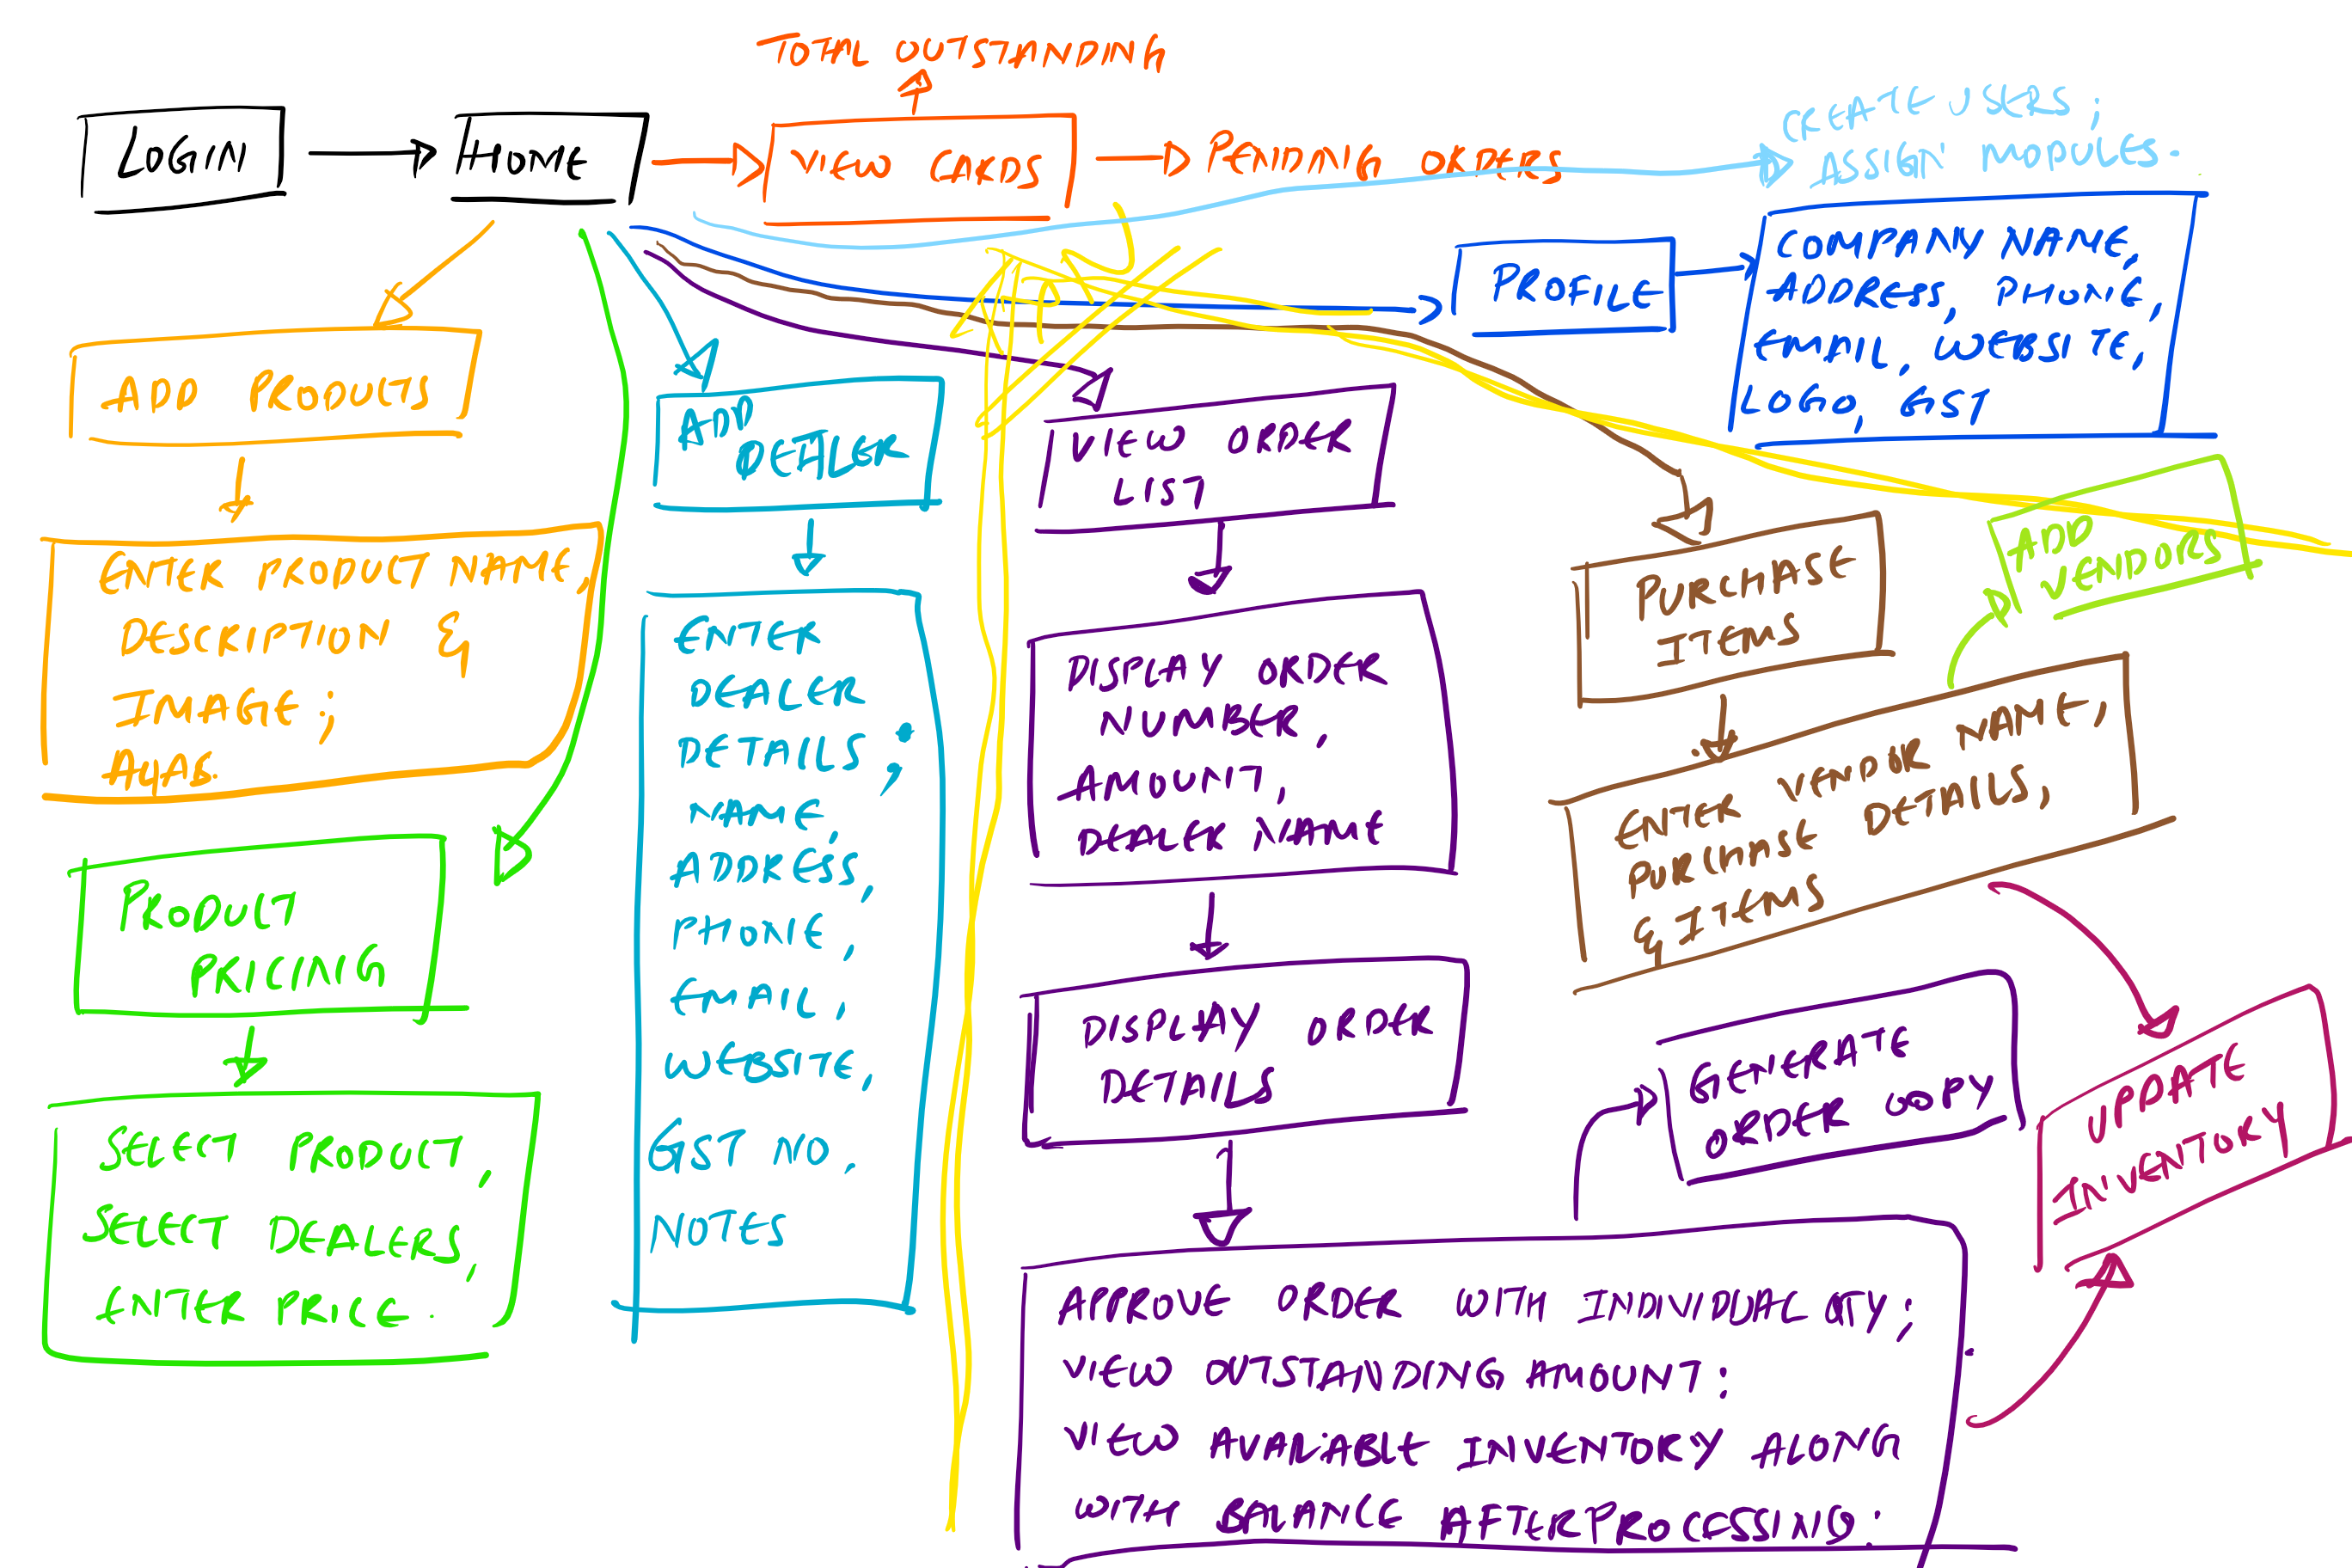 TOTAL OUTSTANDING
LOGIN
HOME
VIEW CARDS
PENDING ORDERS
CREATE USERS;
ASSIGN MODULES.
PROFILE
COMPANY NAME,
ADDRESS, PHONE,
EMAIL, WEBSITE,
LOGO, GST
ADD PRODUCTS
ENTER PRODUCT NAME,
DESCRIPTION &
IMAGE;
PRODUCT
PRICING
SELECT PRODUCT,
SELECT DEALERS,
ENTER PRICE.
ADD
DEALER
ENTER
DEALER
DETAILS;
NAME,
ADDRESS,
PHONE,
EMAIL,
WEBSITE,
GST NO,
NOTES
VIEW ORDER
LIST
DISPLAY ORDER
NUMBER,
AMOUNT,
DEALER NAME
DISPLAY ORDER
DETAILS
APPROVE ORDER WITH INDIVIDUAL QTY;
VIEW OUTSTANDING AMOUNT:
VIEW AVAILABLE INVENTORY ALONG
WITH BALANCE AFTER PROCESSING:
GENERATE
ORDER COPY
PURCHASE
ITEMS
ENTER VENDOR NAME,
PURCHASE DETAILS,
& ITEMS
ADD
VENDORS
UPDATE
INVENTORY